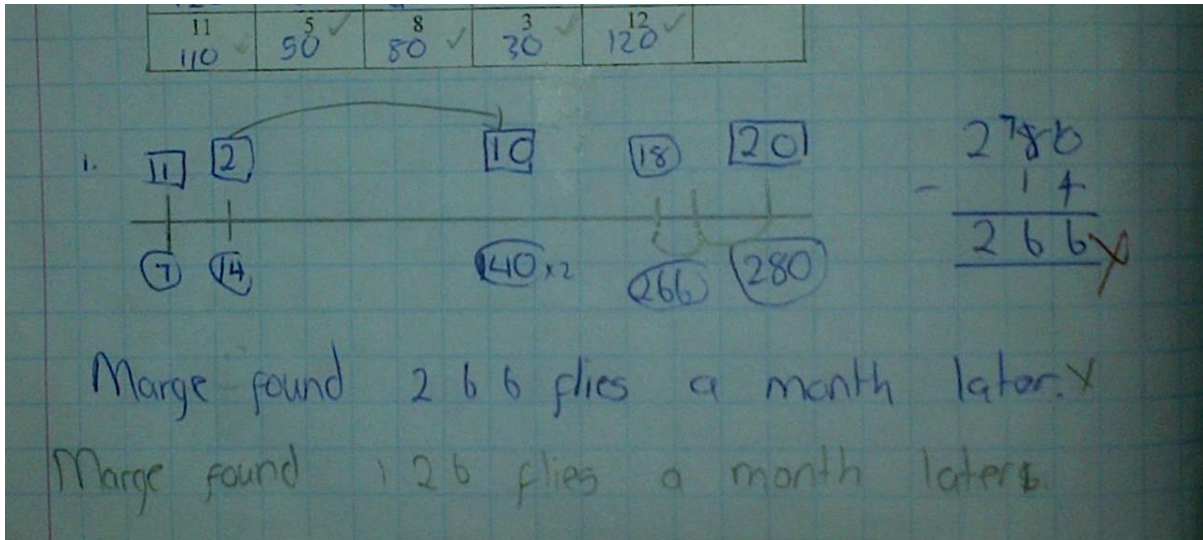 11 5 8 3 12
110 50 80 30 120
1. 1 2 10 18 20
7 14 140 x2 266 280
2 7 8 0
- 1 4
2 6 6 x
Marge found 266 flies a month later. x
Marge found 126 flies a month later.